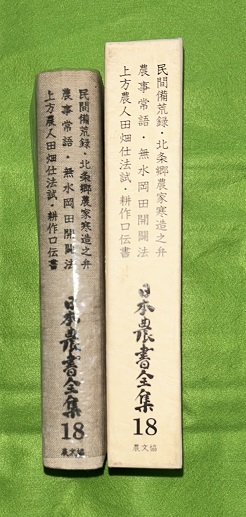 民間備荒録・北条郷農家寒造之弁
農事常語・無水岡田開闢法
上方農人田畑仕法試・耕作口伝書
日本農書全集
18
農文協
民間備荒録・北条郷農家寒造之弁
農事常語・無水岡田開闢法
上方農人田畑仕法試・耕作口伝書
日本農書全集
18
農文協